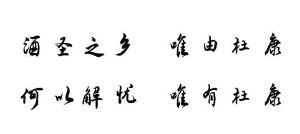 酒圣之乡 唯由杜康
何以解忧 唯有杜康